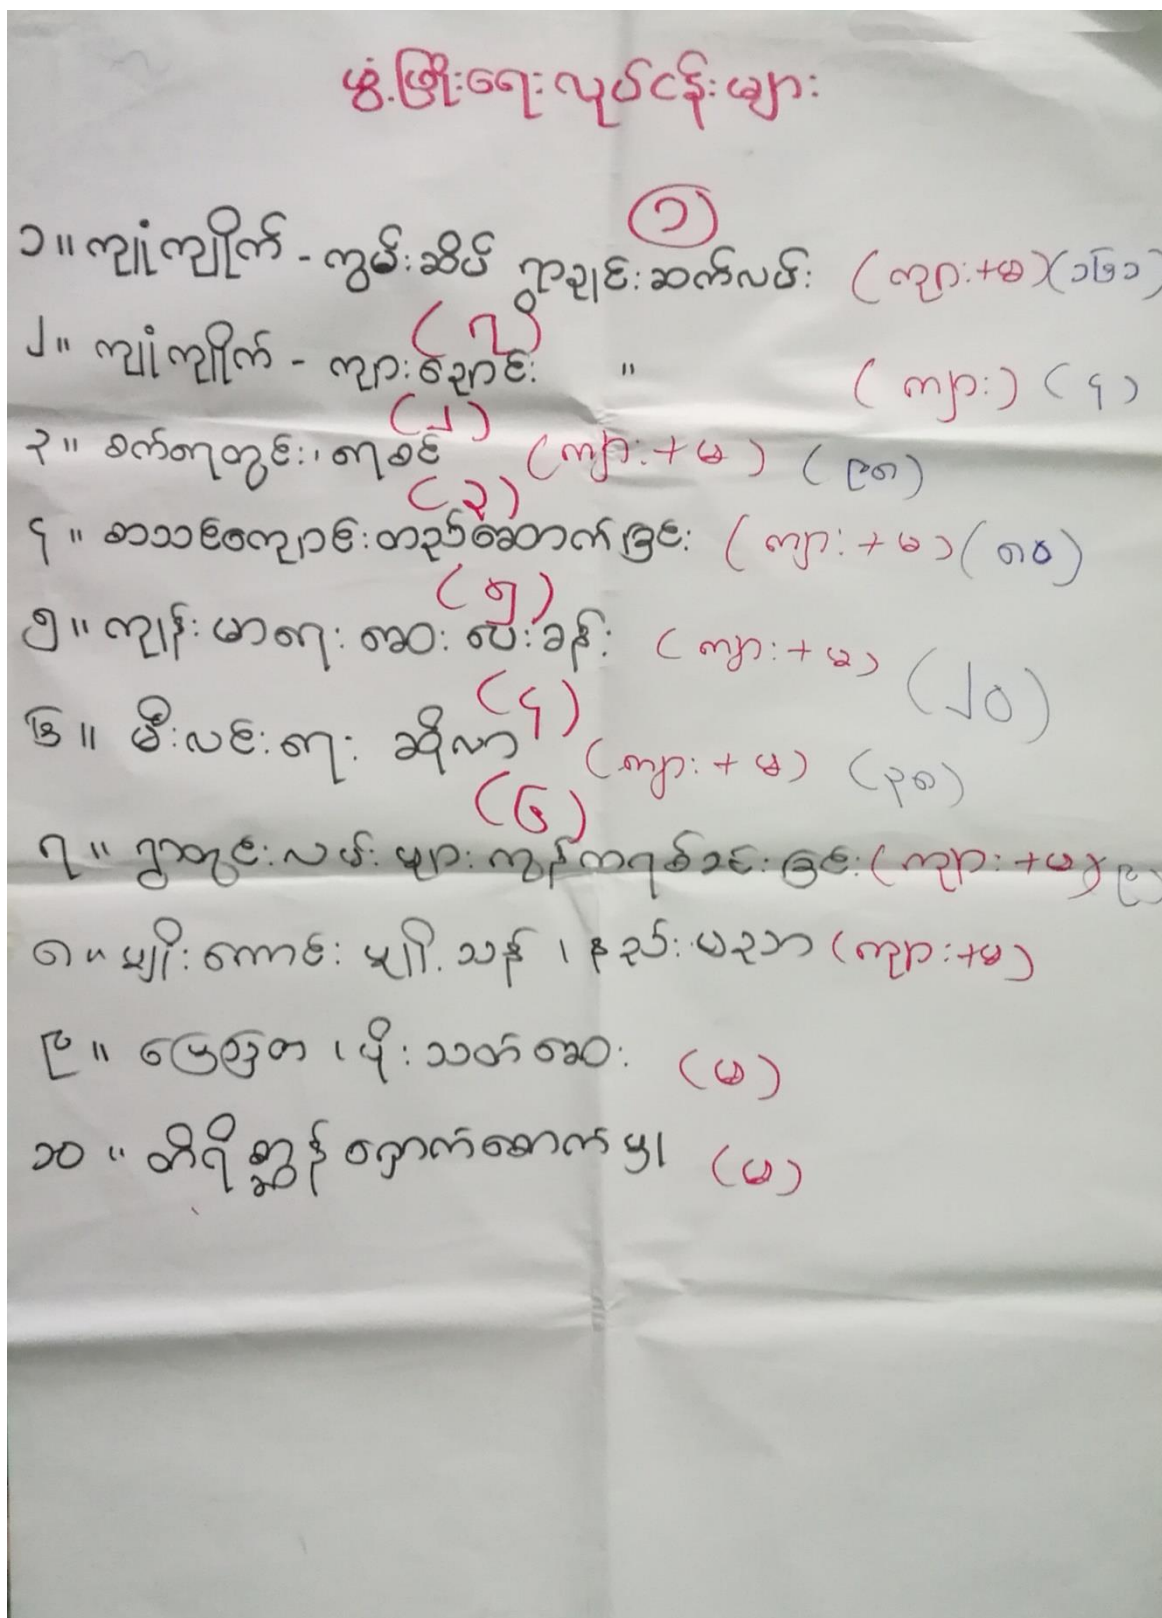 ဖွံ့ဖြိုးရေးလုပ်ငန်းများ
(၁)
၁။ ကျုံကျိုက် - ကွမ်းဆိပ် ရွာချင်းဆက်လမ်း (ကျား+မ) (၁၆၁)
(၇)
၂။ ကျုံကျိုက် - ကျားချောင်း " (ကျား) (၄)
(၂)
၃။ စက်ရေတွင်း၊ ရေစင် (ကျား+မ) (၉၈)
(၃)
၄။ စာသင်ကျောင်းတည်ဆောက်ခြင်း (ကျား+မ) (၈၀)
(၅)
၅။ ကျန်းမာရေး ဆေးပေးခန်း (ကျား+မ) (၂၀)
(၄)
၆။ မီးလင်းရေး ဆိုလာ (ကျား+မ) (၃၈)
(၆)
၇။ ရွာတွင်းလမ်းများ ကွန်ကရစ်ခင်းခြင်း (ကျား+မ) (၉)
၈။ မျိုးကောင်း မျိုးသန့်၊ နည်းပညာ (ကျား+မ)
၉။ မြေဩဇာ၊ ပိုးသတ်ဆေး (မ)
၁၀။ တိရိစ္ဆာန် ဆောက်မှု (မ)